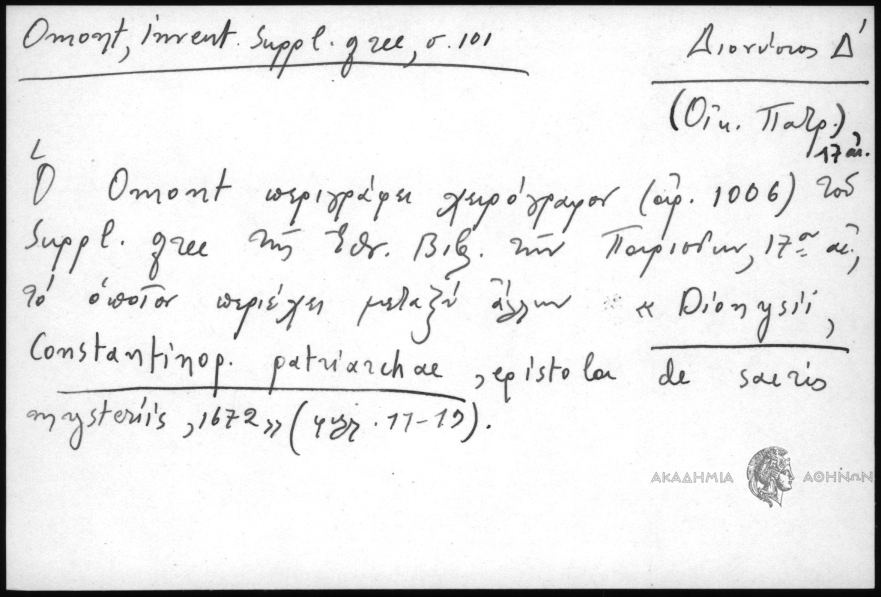 Omont, invent. Suppl. grec, σ. 101
Διονύσιος Δ΄
(Οἰκ. Πατρ.)
17 αἰ.
Ὁ Omont περιγράφει χειρόγραφον (ἀρ. 1006) τοῦ
Suppl. grec τῆς Ἐθν. Βιβ. τῶν Παρισίων, 17ου αἰ.,
τὸ ὁποῖον περιέχει μεταξὺ ἄλλων « Dionysii,
Constantinop. patriarchae, epistola de sacris
mysteriis, 1672» (φυλ. 17-19).
ΑΚΑΔΗΜΙΑ ΑΘΗΝΩΝ